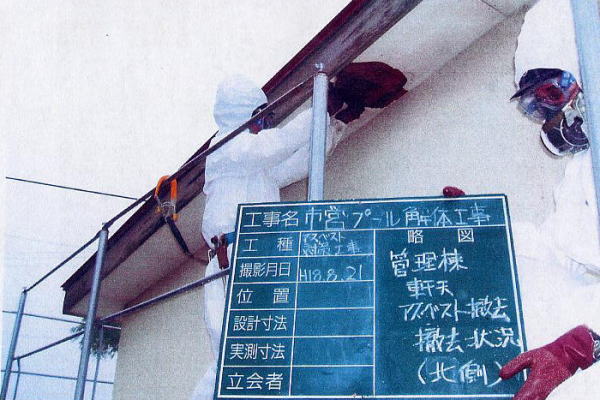 工事名 市営プール解体工事
工種 アスベスト対策工事
撮影月日 H18.8.21
位置
設計寸法
実測寸法
立会者
略図
管理棟
軒天
アスベスト撤去
撤去状況
(北側)